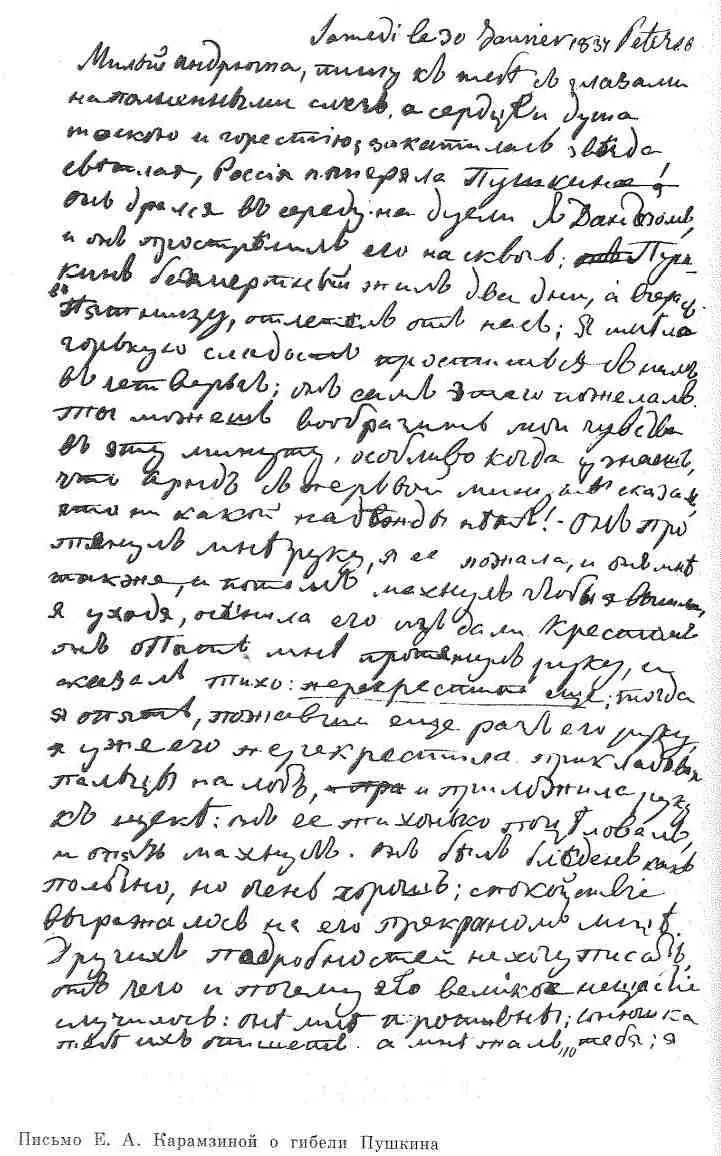 Samedi le 30 Janvier 1837 Peters
Милый Андрюша, пишу къ тебѣ съ глазами
наполненными слезъ, а сердце и душа
тоскою и горестію; закатилась звѣзда
свѣтлая, Россія потеряла Пушкина!
онъ дрался въ середу на дуели съ Дантезомъ,
и онъ прострѣлилъ его насквозь; Пуш-
кинъ безмертный жилъ два дни, а вчера
въ пятницу, отлетѣлъ отъ насъ; я имѣла
горькую сладость проститься съ нимъ
въ четверьгъ; онъ самъ этаго пожелалъ.
ты можешь вообразить мои чувства
въ эту минуту, особливо когда узнаешь,
что Арндъ съ первой минуты сказалъ,
что никакой надѣжды нѣтъ! - онъ про
тянулъ мнѣ руку, я ее пожала, и онъ мнѣ
также, и потомъ махнулъ чтобы я вышла,
я уходя, осѣнила его изъдали крестомъ
онъ опять мнѣ протянулъ руку, и
сказалъ тихо: перекрестите еще; тогда
я опять, пожавши еще разъ его руку,
я уже его перекрестила прикладывая
пальцы на лобъ, и приложила руку
къ щекѣ: онъ ее тихонько поцѣловалъ,
и опять махнулъ. онъ былъ блѣденъ какъ
полотно, но очень хорошъ; спокойствіе
выражалось на его прекрасномъ лицѣ.
Другихъ подробностей нехочу писать,
отъ чего и почему это великое нещастіе
случилось: онѣ мнѣ противны; сонюшка
тебѣ ихъ опишетъ. а мнѣ жаль тебя; я
Письмо Е. А. Карамзиной о гибели Пушкина